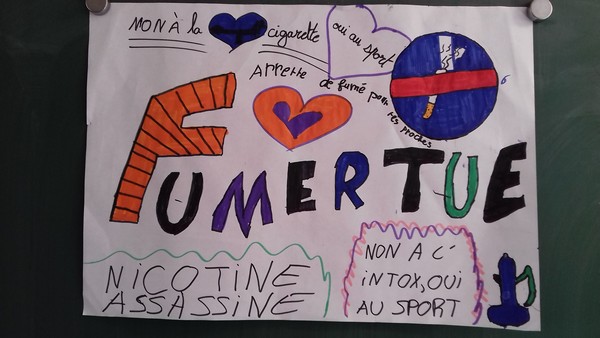 MON À la cigarette
oui au sport
Arrette de fumé pour tes proches
6
FUMER TUE
NICOTINE
ASSASSINE
NON A C'
iNTOX,OUi
AU SPORT